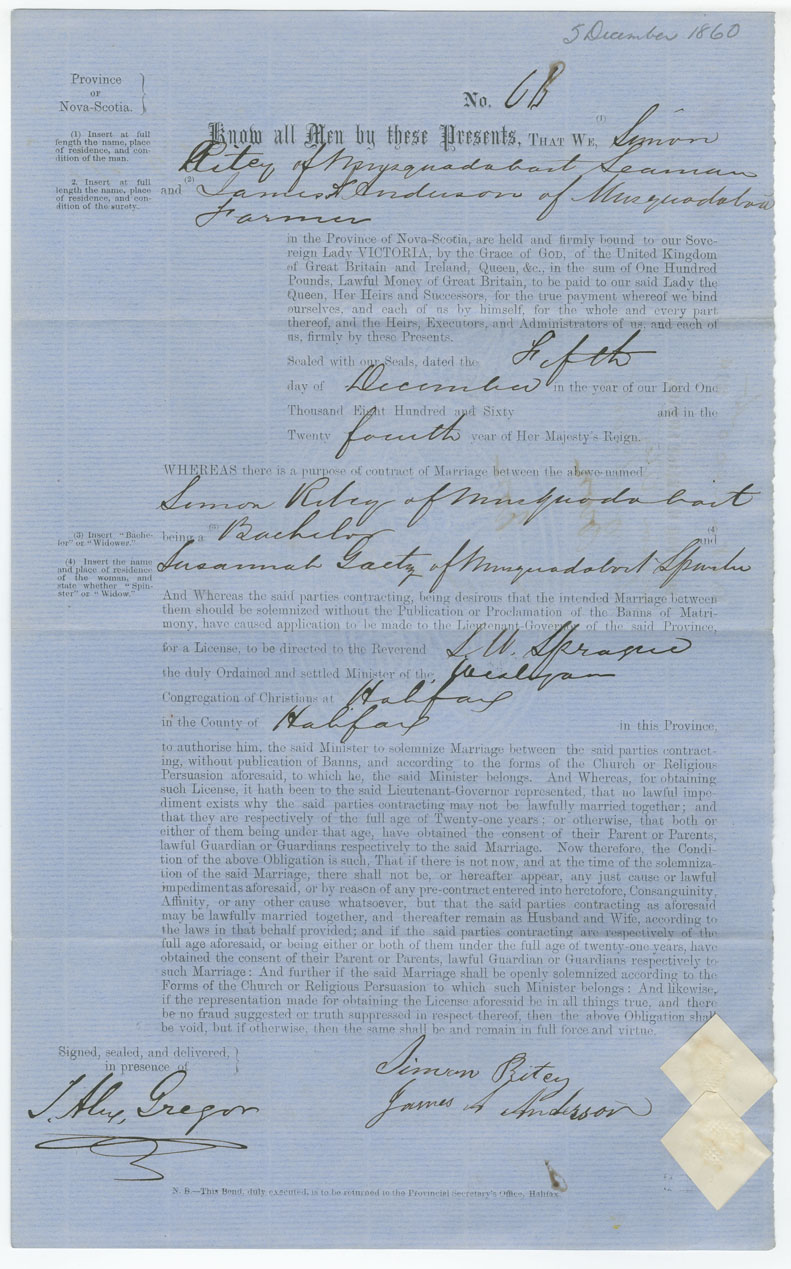 5 December 1860
Province
OF
Nova-Scotia.
No. 68
(1) Insert at full
length the name, place
of residence, and con-
dition of the man.
Know all Men by these Presents, THAT WE, (1) Simon
Ritcy of Musquodoboit Seaman
2. Insert at full
length the name, place
of residence, and con-
dition of the surety.
and (2) James A Anderson of Musquodoboit
Farmer
in the Province of Nova-Scotia, are held and firmly bound to our Sove-
reign Lady VICTORIA, by the Grace of GOD, of the United Kingdom
of Great Britain and Ireland, Queen, &c., in the sum of One Hundred
Pounds, Lawful Money of Great Britain, to be paid to our said Lady the
Queen, Her Heirs and Successors, for the true payment whereof we bind
ourselves, and each of us by himself, for the whole and every part
thereof, and the Heirs, Executors, and Administrators of us, and each of
us, firmly by these Presents.
Sealed with our Seals, dated the Fifth
day of December in the year of our Lord One
Thousand Eight Hundred and Sixty and in the
Twenty fourth year of Her Majesty's Reign.
WHEREAS there is a purpose of contract of Marriage between the above-named
Simon Ritcy of Musquodoboit
(3) Insert "Bache-
lor" or "Widower."
being a (3) Bachelor and (4)
(4) Insert the name
and place of residence
of the woman, and
state whether "Spin-
ster" or "Widow."
Susannah Gaetz of Musquodoboit Spinster
And Whereas the said parties contracting, being desirous that the intended Marriage between
them should be solemnized without the Publication or Proclamation of the Banns of Matri-
mony, have caused application to be made to the Lieutenant-Governor of the said Province,
for a License, to be directed to the Reverend S. W. Sprague
the duly Ordained and settled Minister of the Wesleyan
Congregation of Christians at Halifax
in the County of Halifax in this Province,
to authorise him, the said Minister to solemnize Marriage between the said parties contract-
ing, without publication of Banns, and according to the forms of the Church or Religious
Persuasion aforesaid, to which he, the said Minister belongs. And Whereas, for obtaining
such License, it hath been to the said Lieutenant-Governor represented, that no lawful impe-
diment exists why the said parties contracting may not be lawfully married together; and
that they are respectively of the full age of Twenty-one years: or otherwise, that both or
either of them being under that age, have obtained the consent of their Parent or Parents,
lawful Guardian or Guardians respectively to the said Marriage. Now therefore, the Condi-
tion of the above Obligation is such, That if there is not now, and at the time of the solemniza-
tion of the said Marriage, there shall not be, or hereafter appear, any just cause or lawful
impediment as aforesaid, or by reason of any pre-contract entered into heretofore, Consanguinity,
Affinity, or any other cause whatsoever, but that the said parties contracting as aforesaid
may be lawfully married together, and thereafter remain as Husband and Wife, according to
the laws in that behalf provided; and if the said parties contracting are respectively of the
full age aforesaid, or being either or both of them under the full age of twenty-one years, have
obtained the consent of their Parent or Parents, lawful Guardian or Guardians respectively to
such Marriage: And further if the said Marriage shall be openly solemnized according to the
Forms of the Church or Religious Persuasion to which such Minister belongs: And likewise,
if the representation made for obtaining the License aforesaid be in all things true, and there
be no fraud suggested or truth suppressed in respect thereof, then the above Obligation shall
be void, but if otherwise, then the same shall be and remain in full force and virtue.
Signed, sealed, and delivered,
in presence of
Simon Ritcy
James A Anderson
J. Alex. Gregor
N. B.—This Bond, duly executed, is to be returned to the Provincial Secretary's Office, Halifax.